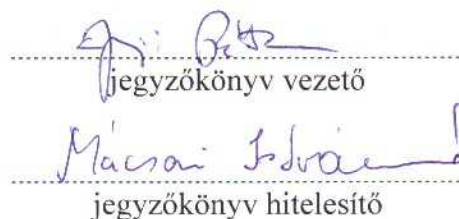 jegyzőkönyv vezető
Mácsai István
jegyzőkönyv hitelesítő